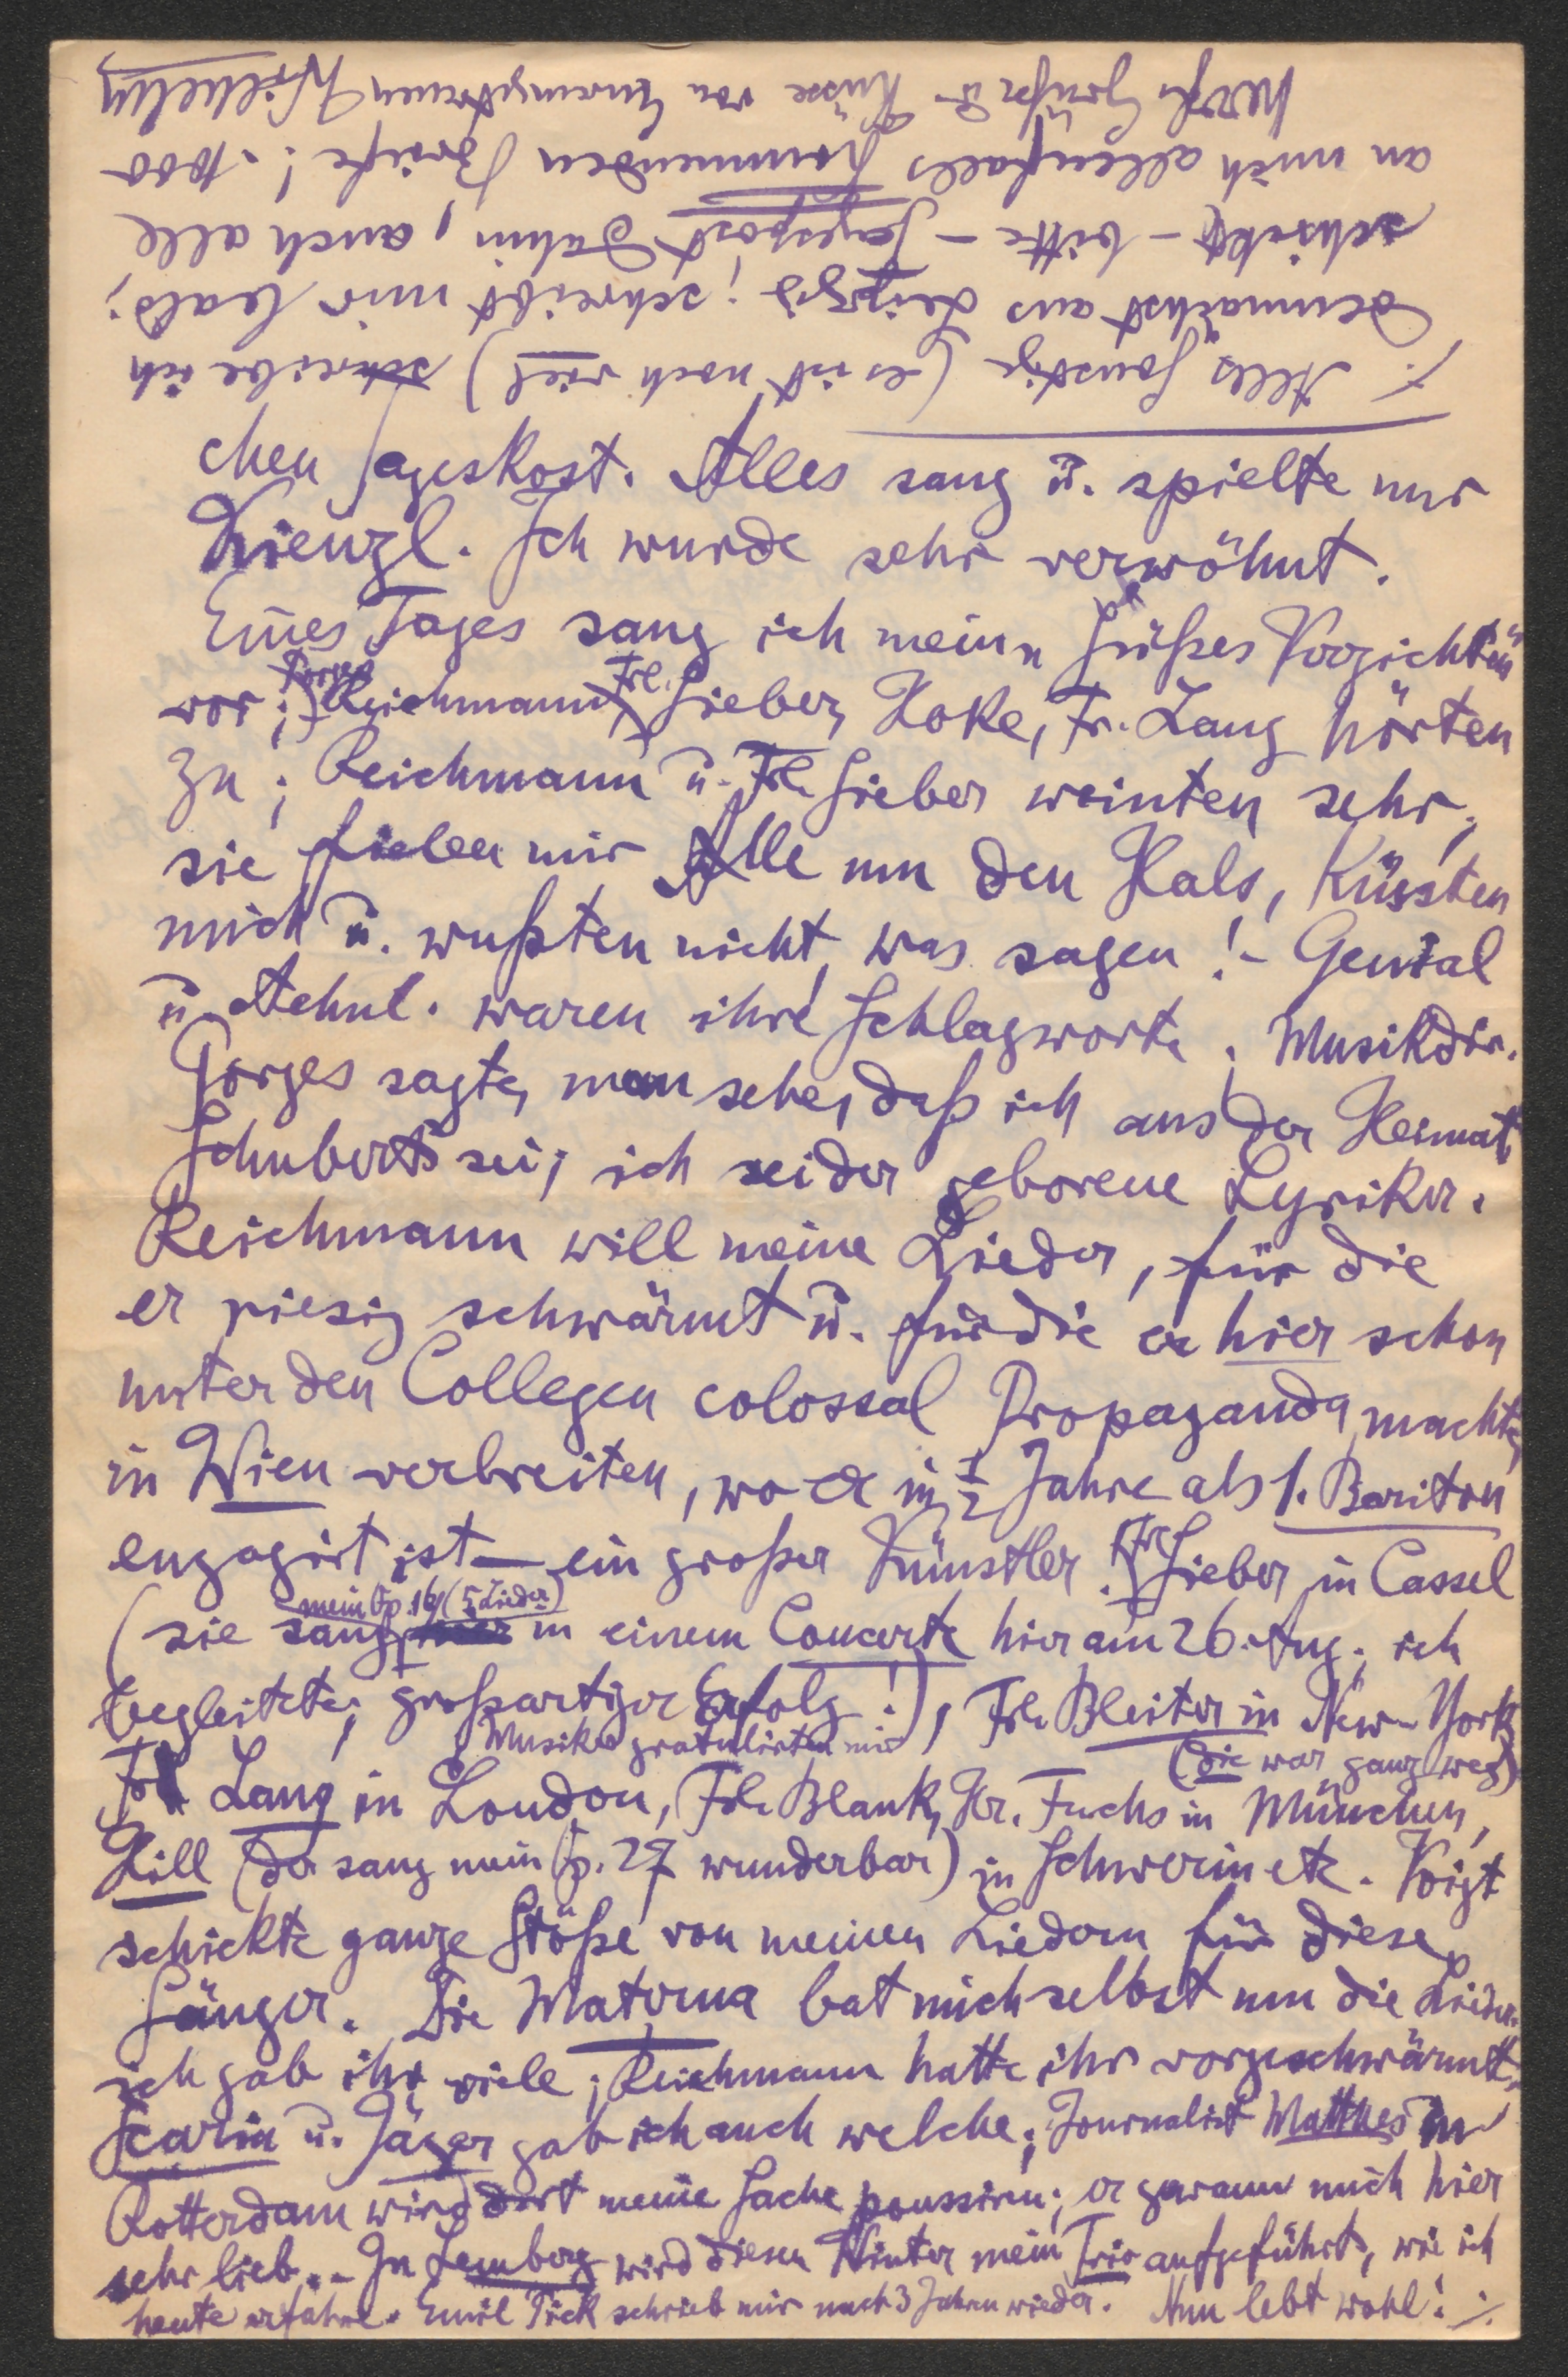 chen Tageskost. Alles sang u. spielte nur
Kienzl. Ich wurde sehr verwöhnt.
Eines Tages sang ich mein „Süßes Verzichten"
vor; Porges Reichmann, Frl. Sieber, Koke, Fr. Lang hörten
zu; Reichmann u. Frl. Sieber weinten sehr,
sie fielen mir Alle um den Hals, küssten
mich u. wußten nicht, was sagen! - Genial
u. Aehnl. waren ihre Schlagworte; Musikdir.
Porges sagte, man sehe, daß ich aus der Heimat
Schuberts sei; ich sei der geborene Lyriker.
Reichmann will meine Lieder, für die
er riesig schwärmt u. für die er hier schon
unter den Collegen colossal Propaganda machte,
in Wien verbreiten, wo er in ½ Jahre als 1. Bariton
engagirt ist — ein großer Künstler! Frl. Sieber in Cassel
(sie sang mein Op. 16 (5 Lieder) in einem Concerte hier am 26. Aug.; ich
begleitete; großartiger Erfolg!), Frl. Bleiter in New-York
Musiker gratulirten mir
(die war ganz weg)
Fr. Lang in London, Frl. Blank, Hr. Fuchs in München,
Hill (der sang mein Op. 27 wunderbar) in Schwerin etc. Voigt
schickte ganze Stöße von meinen Liedern für diese
Sänger. Die Materna bat mich selbst um die Lieder.
ich gab ihr viele; Reichmann hatte ihr vorgeschwärmt.
Scaria u. Jäger gab ich auch welche; Journalist Matthes in
Rotterdam wird dort meine Sache poussiren; er gewann mich hier
sehr lieb. - In Lemberg wird diesen Winter mein Trio aufgeführt, wie ich
heute erfahre. Emil Pick schrieb mir nach 3 Jahren wieder. Nun lebt wohl! ./.
./. Alles Sonstige (es ist noch viel) schreibe ich
demnächst aus Leipzig; schreibt mir bald;
schickt - bitte - Tagespost dahin, auch alle
an mich allenfalls kommenden Briefe! - 1000
herzl. Grüße u. Küsse von Eurem getreuen Wilhelm